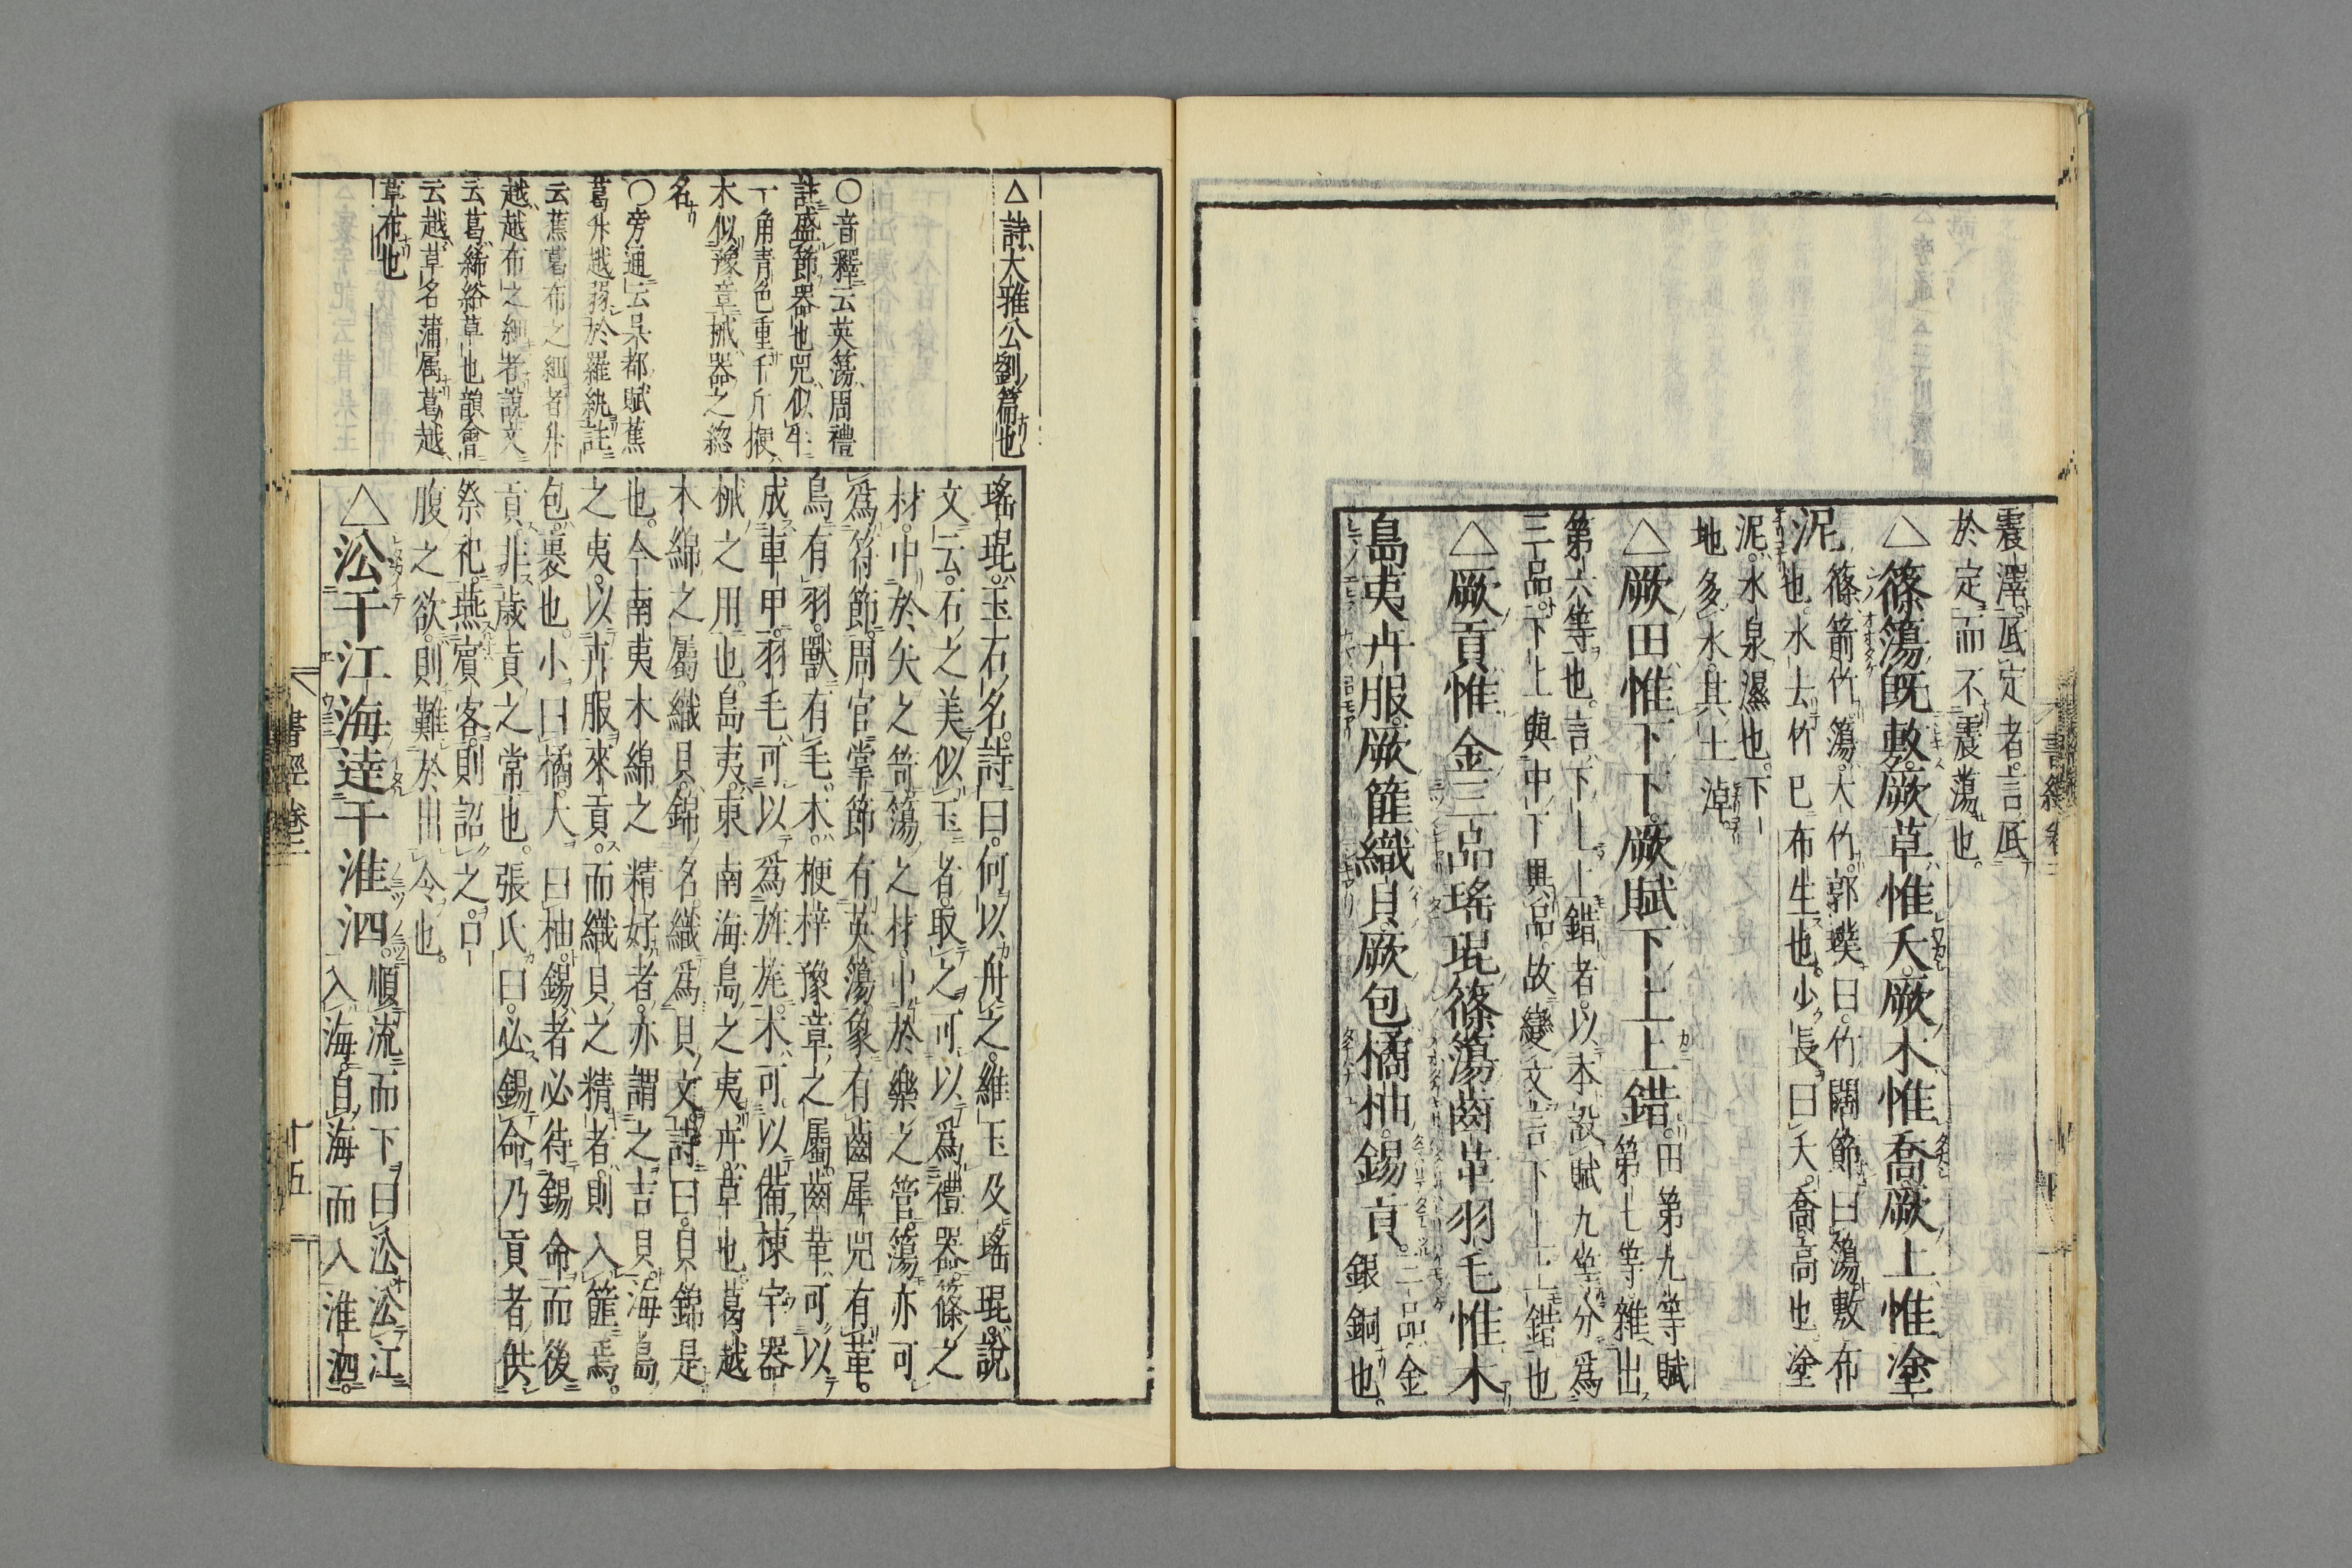 震澤底定者言底
於定而不震蕩也。
△篠簜既敷。厥草惟夭。厥木惟喬。厥土惟塗
泥。篠箭竹。簜大竹。郭璞曰。竹闊節曰簜。敷布
也。水去竹已布生也。少長曰夭。喬高也。塗
泥。水泉濕也。下
地多水。其土淖。
△厥田惟下下。厥賦下上上錯。田第九等賦
第七等。雜出
第六等也。言下上上錯者。以本設賦九等分爲
三品。下上與中下異品。故變文言下上上錯也
△厥貢惟金三品瑤琨篠簜齒革羽毛惟木
島夷卉服。厥篚織貝。厥包橘柚。錫貢。三品金
銀銅也。
書經卷三
△詩大雅公劉篇也
○音釋云英簜周禮
註盛節器也兕似牛
一角青色重千斤楩
木似豫章械器之總
名
○旁通云吳都賦蕉
葛升越弱於羅紈註
云蕉葛布之細者升
越越布之細者說文
云葛絺綌草也韻會
云越草名蒲属葛越
草布也
瑤琨。玉石名。詩曰。何以舟之。維玉及瑤琨。說
文云。石之美似玉者。取之可以爲禮器。篠之
材。中於矢之笴。簜之材。中於樂之管。簜亦可
爲符節。周官掌節有英簜。象有齒。犀兕有革。
鳥有羽。獸有毛。木。楩梓豫章之屬。齒革可以
成車甲。羽毛可以爲旌旄。木可以備棟宇器
械之用也。島夷。東南海島之夷。卉。草也。葛越
木綿之屬。織貝。錦名。織爲貝文。詩曰。貝錦是
也。今南夷木綿之精好者。亦謂之吉貝。海島
之夷。以卉服來貢。而織貝之精者。則入篚焉。
包。裹也。小曰橘。大曰柚。錫者必待錫命而後
貢。非歲貢之常也。張氏曰。必錫命乃貢者。供
祭祀。燕賓客。則詔之。口
腹之欲。則難於出令也。
△沿于江海達于淮泗。順流而下曰沿。沿江
入海。自海而入淮泗。
書經卷三
十五